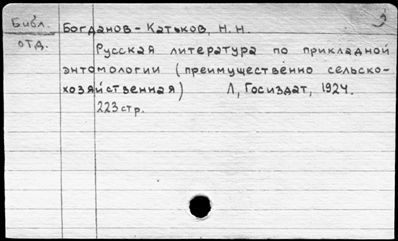 Библ.
отд.
Богданов-Катьков, Н. Н.
Русская литература по прикладной
энтомологии (преимущественно сельско-
хозяйственная) Л, Госиздат, 1924.
223 стр.